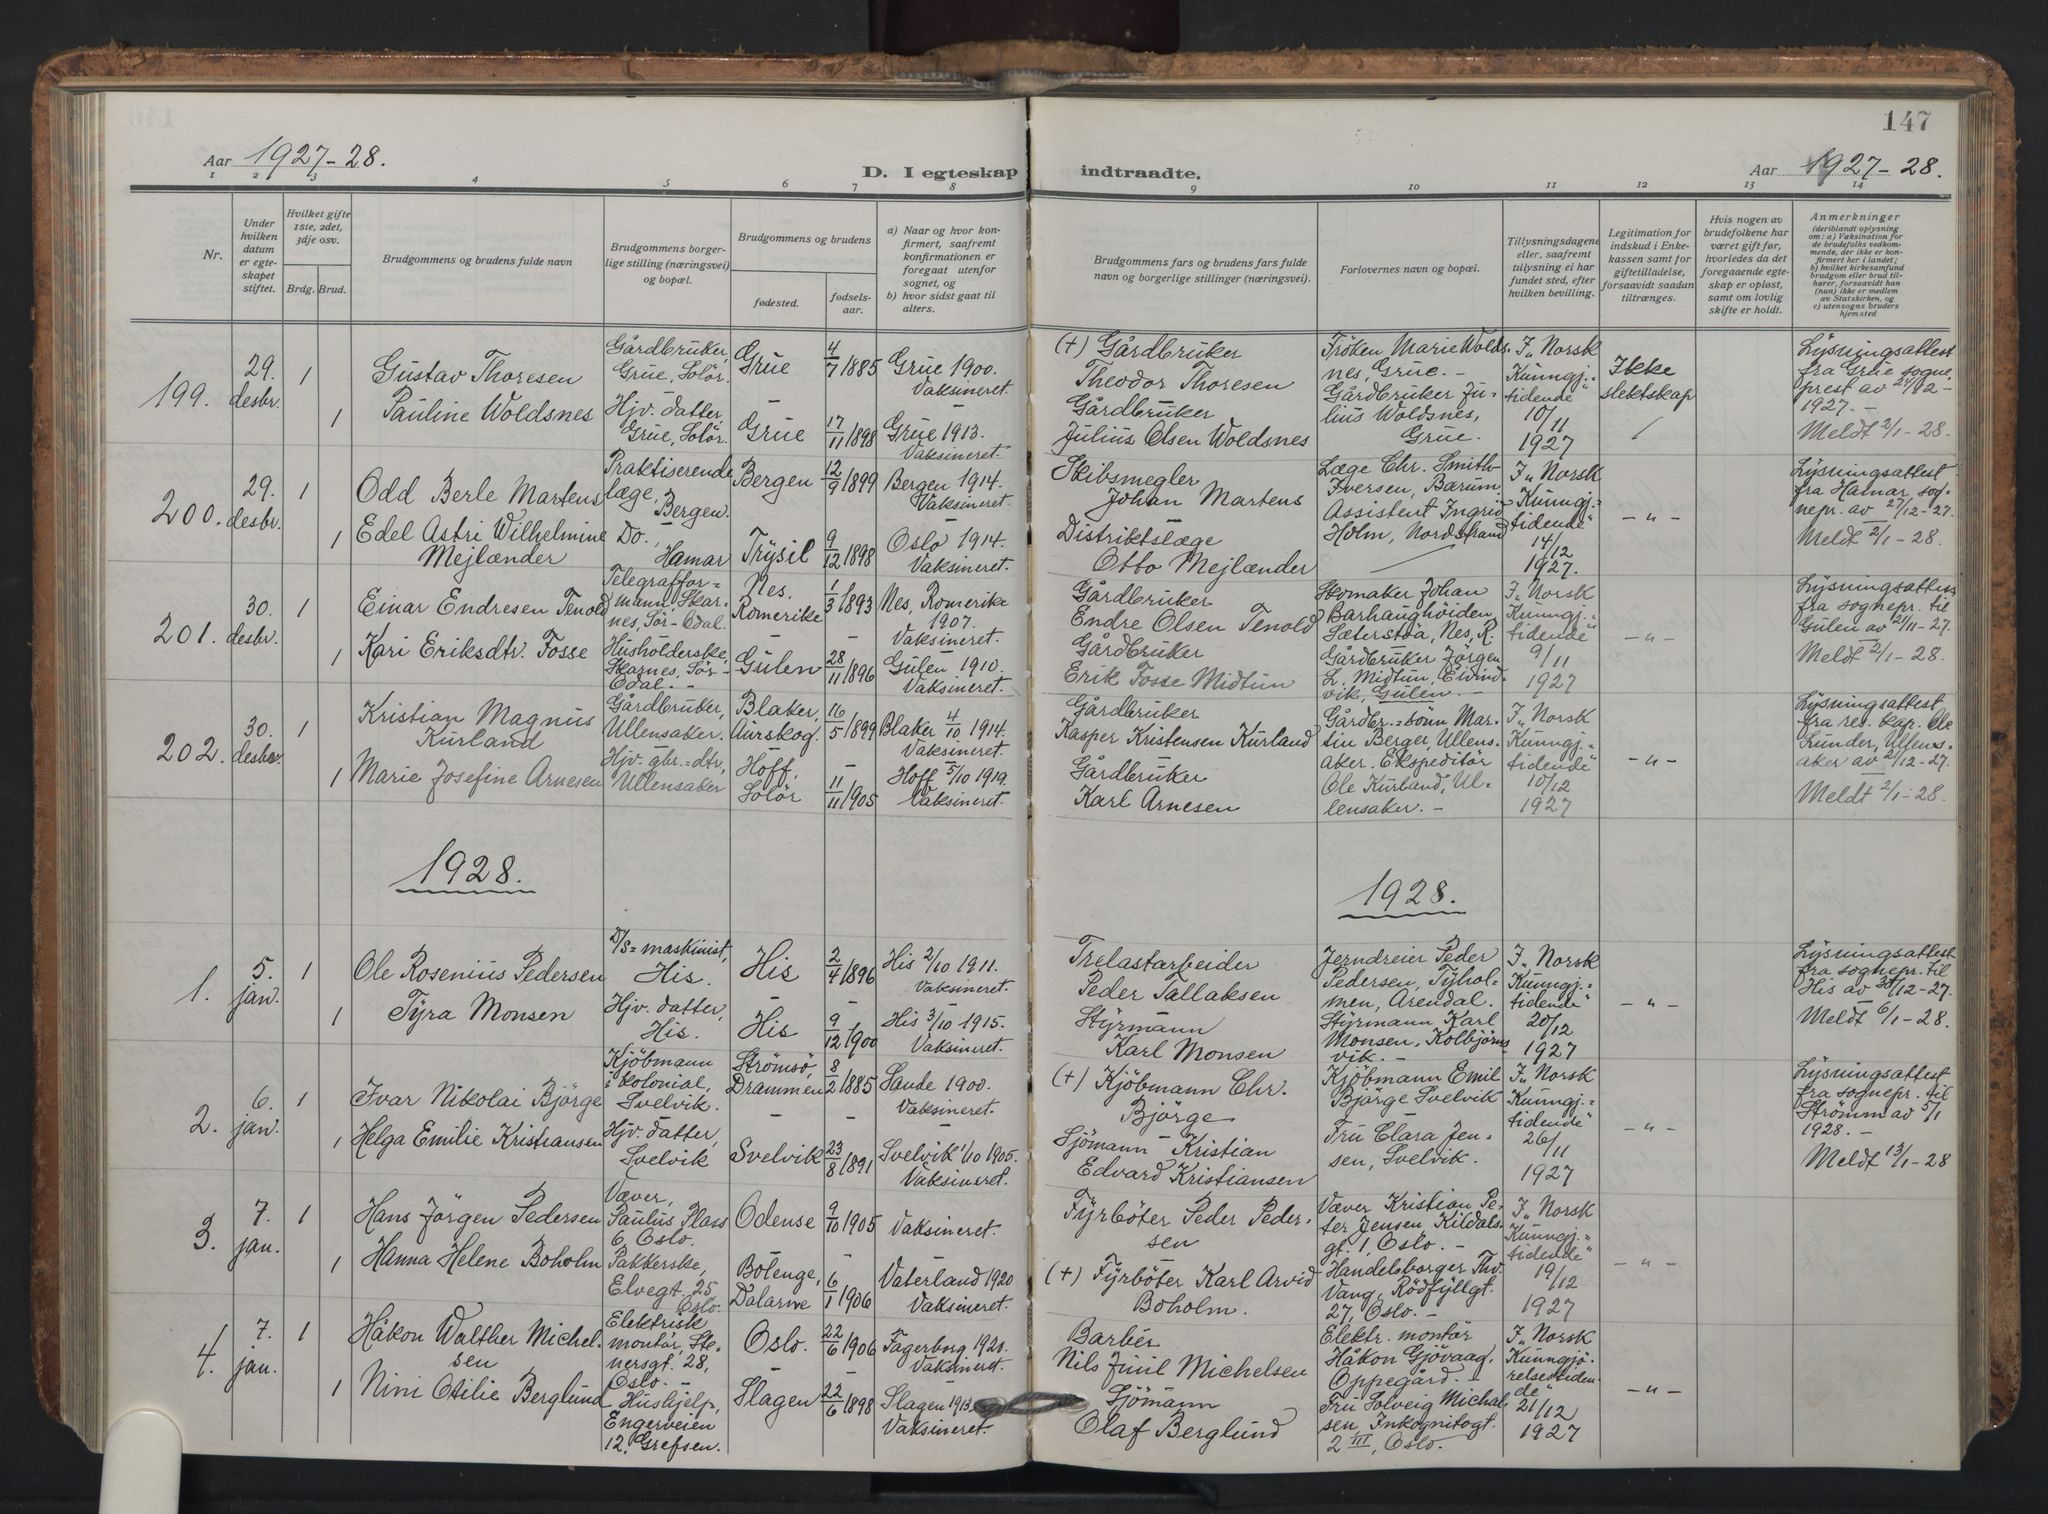 147
Aar 1927-28.
D. I egteskap indtraadte.
Aar 1927-28.
1 2 3 4 5 6 7 8 9 10 11 12 13 14
Nr.
Under hvilken datum er egteskapet stiftet.
Hvilket gifte 1ste, 2det, 3dje osv.
Brdg. Brud.
Brudgommens og brudens fulde navn
Brudgommens borgerlige stilling (næringsvei) og bopæl.
Brudgommens og brudens
fødested.
fødselsaar.
a) Naar og hvor konfirmert, saafremt konfirmationen er foregaat utenfor sognet, og
b) hvor sidst gaat til alters.
Brudgommens fars og brudens fars fulde navn og borgerlige stillinger (næringsvei).
Forlovernes navn og bopæl.
Tillysningsdagene eller, saafremt tillysning ei har fundet sted, efter hvilken bevilling.
Legitimation for indskud i Enkekassen samt for giftetilladelse, forsaavidt saadan tiltrænges.
Hvis nogen av brudefolkene har været gift før, hvorledes da det foregaaende egteskap er opløst, samt om lovlig skifte er holdt.
Anmerkninger
(deriblandt oplysning om: a) Vaksination for de brudefolks vedkommende, der ikke er konfirmert her i landet; b) hvilket kirkesamfund brudgom eller brud tilhører, forsaavidt han (hun) ikke er medlem av Statskirken, og c) utensogns bruders hjemsted
199. 29. desbr. 1
Gustav Thoresen
Gårdbruker, Grue, Solör.
Grue 4/7 1885
Grue 1900. Vaksineret.
(+) Gårdbruker Theodor Thoresen
Fröken Marie Woldsnes, Grue. -
I „Norsk Kunngj.=tidende" 10/11 1927
Ikke slektskap
Lysningsattest fra Grue sogneprest av 27/12-1927. -
Meldt 2/1-28.
1 Pauline Woldsnes
Hjv. datter, Grue, Solör.
Grue 17/11 1898
Grue 1913. Vaksineret.
Gårdbruker Julius Olsen Woldsnes
Gårdbruker Julius Woldsnes, Grue.
200. 29. desbr. 1
Odd Berle Martens
Praktiserende læge, Bergen.
Bergen 12/9 1899
Bergen 1914. Vaksineret.
Skibsmegler Johan Martens
Læge Chr. Smith-Iversen, Bærum
I „Norsk Kunngj.=tidende" 14/12 1927.
-„-
Lysningsattest fra Hamar, sognepr. av 27/12-27.
Meldt 2/1-28.
1 Edel Astri Wilhelmine Mejlænder
Do., Hamar
Trysil 9/12 1898
Oslo 1914. Vaksineret.
Distriktslæge Otto Mejlænder
Assistent Ingrid Holm, Nordstrand
201. 30. desbr. 1
Einar Endresen Tenold
Telegrafformann, Skarnes, Sör-Odal.
Nes, Romerike 1/3 1893
Nes, Romerike 1907. Vaksineret.
Gårdbruker Endre Olsen Tenold
Skomaker Johan Barhaughöiden, Sæterstöa, Nes, R.
I „Norsk Kunngj.=tidende" 9/11 1927
-„-
Lysningsattest fra sognepr. til Gulen av 21/11-27.
Meldt 2/1-28.
1 Kari Eriksdtr. Fosse
Husholderske, Skarnes, Sör-Odal. -
Gulen 28/11 1896
Gulen 1910. Vaksineret.
Gårdbruker Erik Fosse Midtun
Gårdbruker Jörgen L. Midtun, Eivindvik, Gulen. -
202. 30. desbr. 1
Kristian Magnus Kurland
Gårdbruker, Ullensaker.
Blaker, Aurskog. 16/5 1899
Blaker 4/10 1914. Vaksineret.
Gårdbruker Kasper Kristensen Kurland
Gårdbr.=sönn Martin Berger, Ullensaker.
I „Norsk Kunngj.=tidende" 10/12 1927
-„-
Lysningsattest fra res. kap. Ole Lunder, Ullensaker av 21/12-27.
Meldt 2/1-28.
1 Marie Josefine Arnesen
Hjv. gbr.-dtr, Ullensaker
Hoff, Solör 11/11 1905
Hoff 5/10 1919. Vaksineret.
Gårdbruker Karl Arnesen
Ekspeditör Ole Kurland, Ullensaker. -
1928.
1928.
1. 5. jan. 1
Ole Rosenius Pedersen
D/S=maskinist, His.
His 2/4 1896
His 2/10 1911. Vaksineret.
Trelastarbeider Peder Tallaksen
Jerndreier Peder Pedersen, Tyholmen, Arendal.
I „Norsk Kunngj.=tidende" 20/12 1927
-„-
Lysningsattest fra sognepr. til His av 30/12-27.
Meldt 6/1-28.
1 Tyra Monsen
Hjv. datter, His.
His 9/12 1900
His 3/10-1915. Vaksineret.
Styrmann Karl Monsen
Styrmann Karl Monsen, Kolbjörnsvik. -
2. 6. jan. 1
Ivar Nikolai Björge
Kjöbmann i kolonial, Svelvik.
Strömsö, Drammen 8/2 1885
Sande 1900. Vaksineret.
(+) Kjöbmann Chr. Björge
Kjöbmann Emil Björge Svelvik
I „Norsk Kunngj.=tidende" 26/11 1927
-„-
Lysningsattest fra sognepr. til Strömm av 5/1 1928. -
Meldt 13/1-28
1 Helga Emilie Kristiansen
Hjv. datter, Svelvik
Svelvik 23/8 1891
Svelvik 1/10 1905. Vaksineret.
Sjömann Kristian Edvard Kristiansen
Fru Clara Jensen, Svelvik.
3. 7. jan. 1
Hans Jörgen Pedersen
Væver, Paulus Plass 6, Oslo.
Odense 9/10 1905
Vaksineret.
Fyrböter Peder Pedersen
Væver Kristian Peter Jensen, Kildalsgt. 1, Oslo. -
I „Norsk Kunngj.=tidende" 19/12 1927
-„-
1 Hanna Helene Boholm
Pakkerske, Elvegt. 25 Oslo.
Bolenge, Dalarne 6/1 1906
Vaterland 1920 Vaksineret.
(+) Fyrböter Karl Arvid Boholm.
Handelsborger Thv. Vang, Rödfyllgt. 27, Oslo. -
4. 7. jan. 1
Håkon Walther Michelsen
Elektrisk montör, Stenersgt. 28, Oslo. -
Oslo. 22/6 1906
Fagerborg 1920. Vaksineret.
Barbér Nils Juul Michelsen
Elektr. montör Håkon Gjövaag, Oppegård. -
I „Norsk Kunngjörelsestidende" 21/12 1927
-„-
1 Nini Otilie Berglund
Hushjelp, Engerveien 12, Grefsen.
Slagen 22/6 1898
Slagen 1913. Vaksineret.
Sjömann Olaf Berglund
Fru Solveig Michalsen, Inkognitogt. 2 III, Oslo.